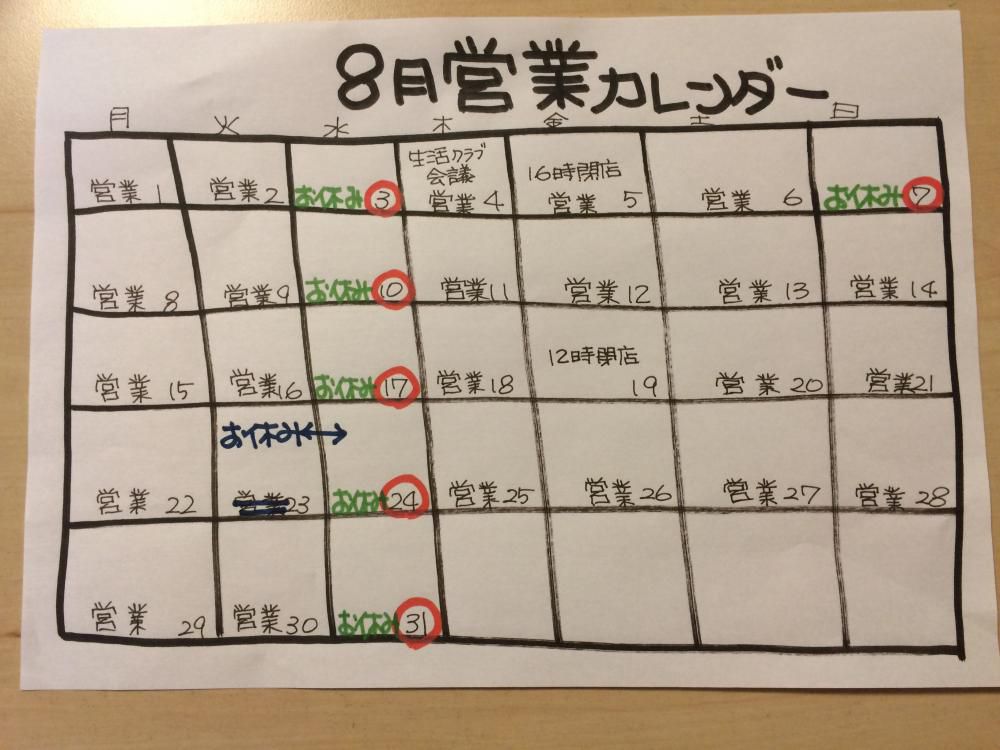 8月営業カレンダー
月 火 水 木 金 土 日
生活クラブ
会議
16時閉店
営業 1 営業 2 お休み 3 営業 4 営業 5 営業 6 お休み 7
営業 8 営業 9 お休み 10 営業 11 営業 12 営業 13 営業 14
12時閉店
営業 15 営業 16 お休み 17 営業 18 19 営業 20 営業 21
お休み↔
営業 22 営業 23 お休み 24 営業 25 営業 26 営業 27 営業 28
営業 29 営業 30 お休み 31